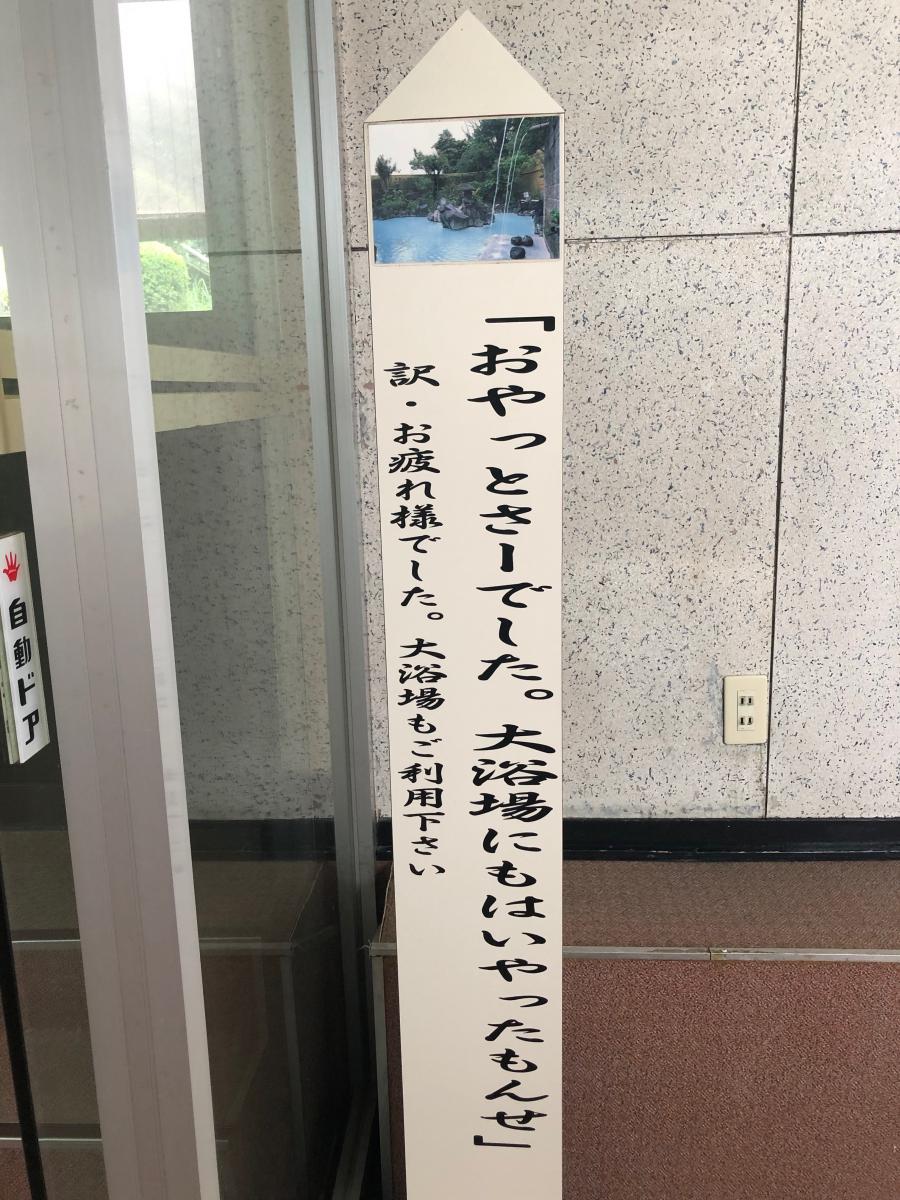 「おやっとさーでした。大浴場にもはいやったもんせ」
訳・お疲れ様でした。大浴場もご利用下さい
自動ドア